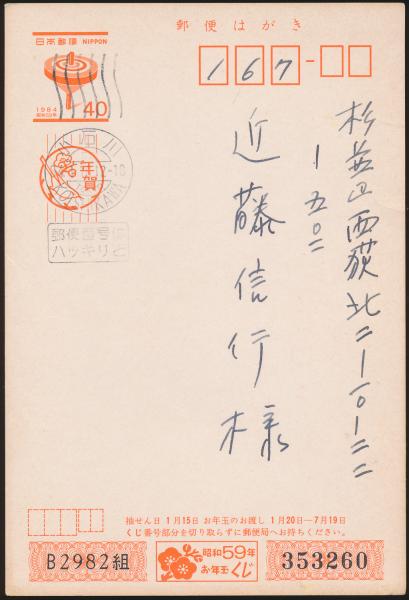 郵便はがき
日本郵便 NIPPON
1984
昭和59年
40
167
杉並区西荻北二ー一〇ー二二
ー五〇二
近藤信行様
年賀
郵便番号は
ハッキリと
抽せん日 1月15日 お年玉のお渡し 1月20日―7月19日
くじ番号部分を切り取らずに郵便局へお持ちください。
B2982組
昭和59年
お年玉くじ
353260